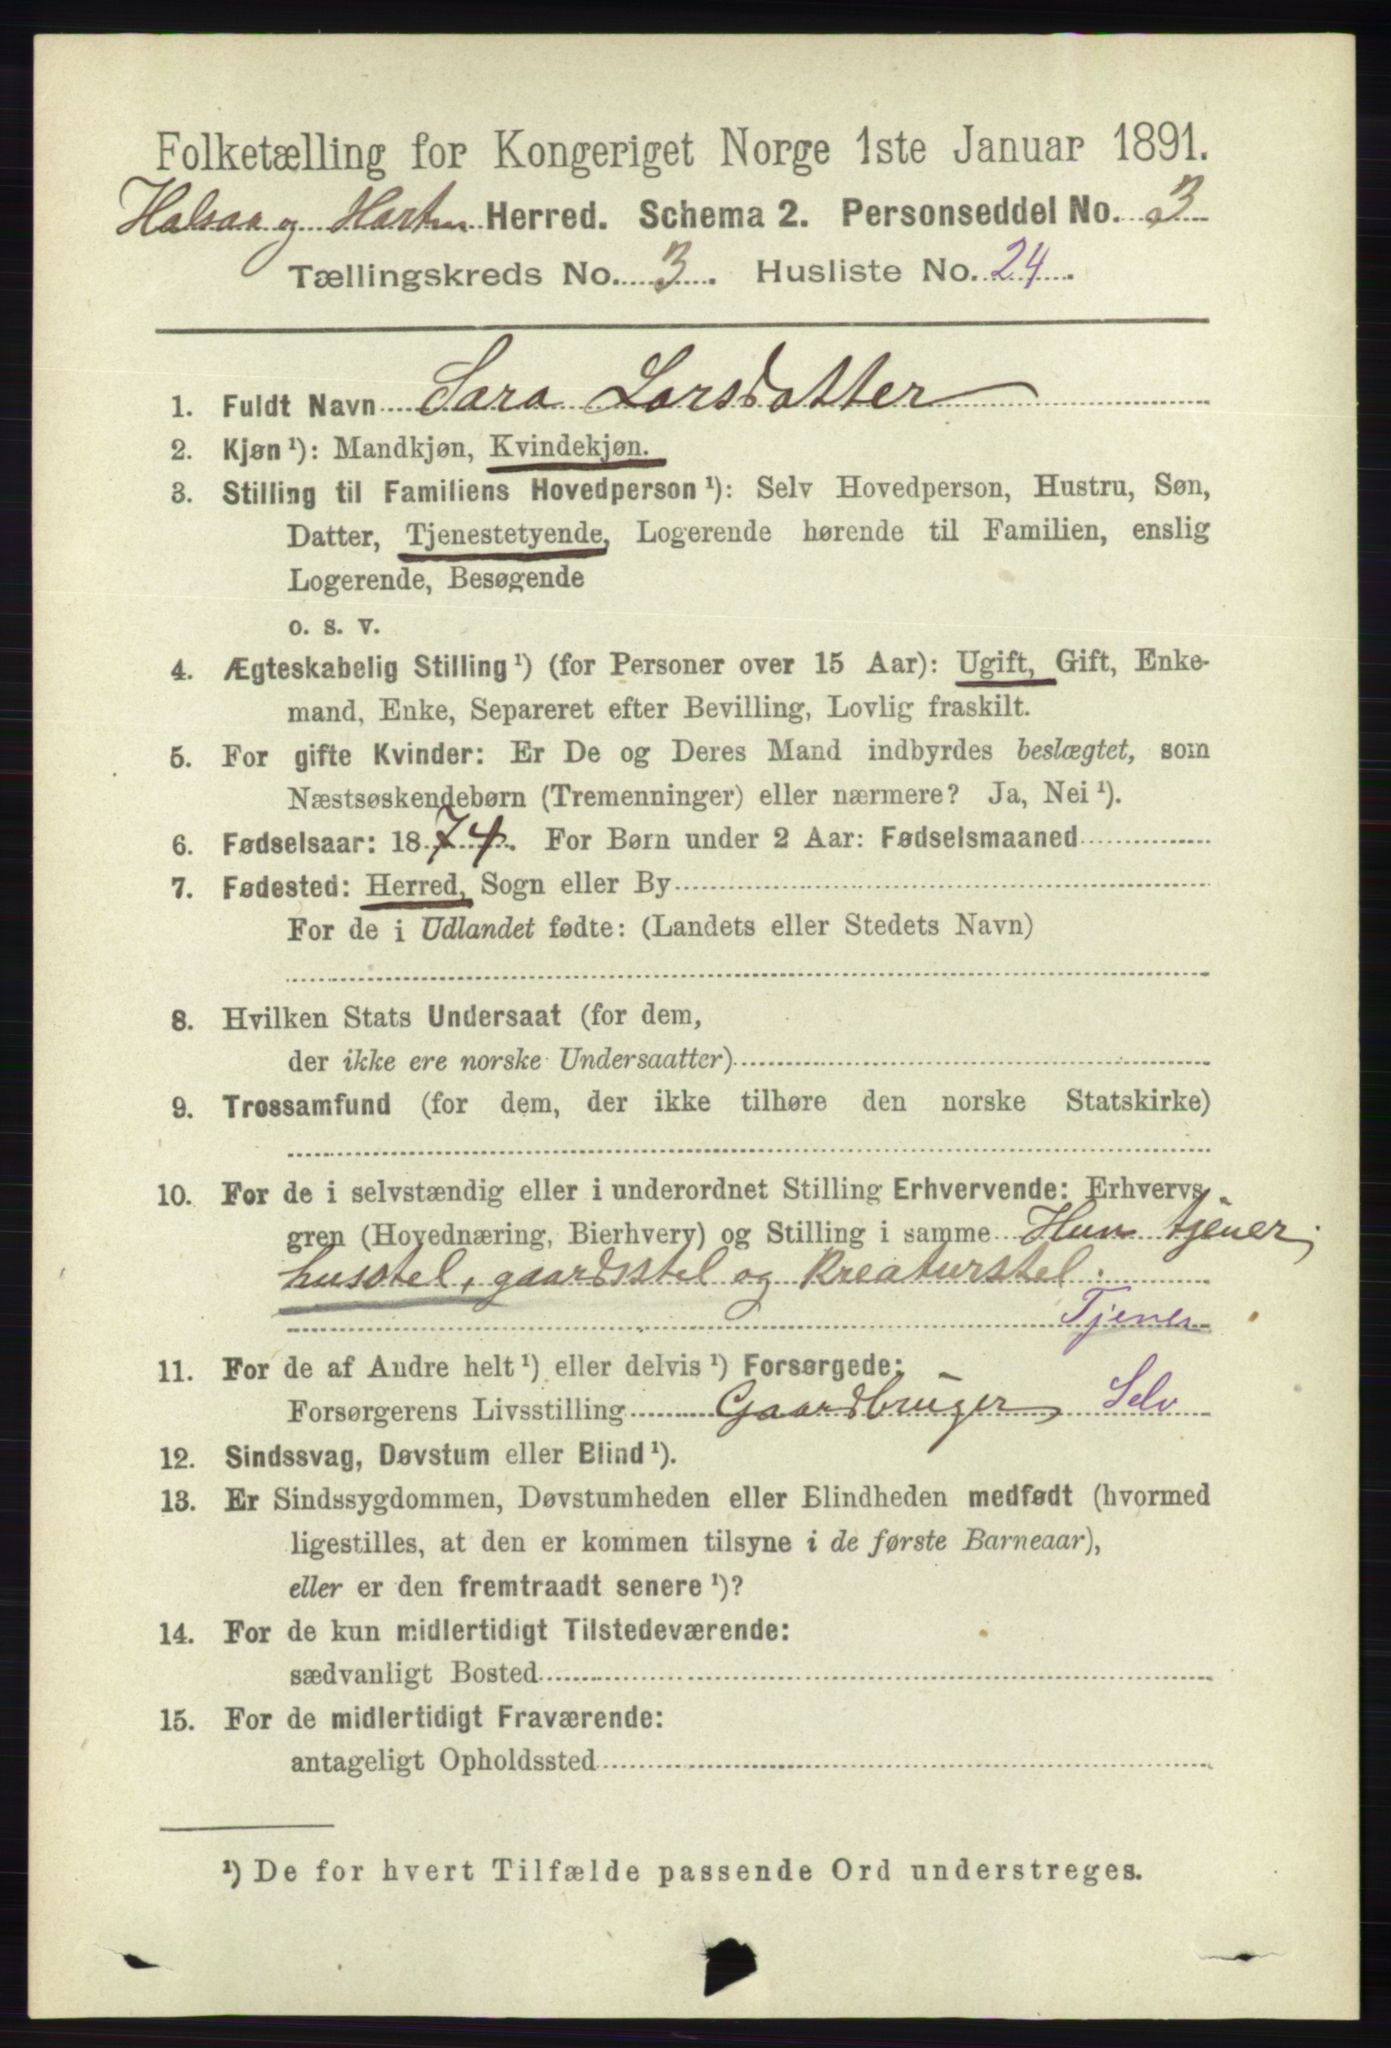 Folketælling for Kongeriget Norge 1ste Januar 1891.
Halsaa og Hartm Herred. Schema 2. Personseddel No. 3
Tællingskreds No. 3. Husliste No. 24.
1. Fuldt Navn Sara Larsdatter
2. Kjøn ¹): Mandkjøn, Kvindekjøn.
3. Stilling til Familiens Hovedperson ¹): Selv Hovedperson, Hustru, Søn,
Datter, Tjenestetyende, Logerende hørende til Familien, enslig
Logerende, Besøgende
o. s. v.
4. Ægteskabelig Stilling ¹) (for Personer over 15 Aar): Ugift, Gift, Enke-
mand, Enke, Separeret efter Bevilling, Lovlig fraskilt.
5. For gifte Kvinder: Er De og Deres Mand indbyrdes beslægtet, som
Næstsøskendebørn (Tremenninger) eller nærmere? Ja, Nei ¹).
6. Fødselsaar: 1874. For Børn under 2 Aar: Fødselsmaaned
7. Fødested: Herred, Sogn eller By
For de i Udlandet fødte: (Landets eller Stedets Navn)
8. Hvilken Stats Undersaat (for dem,
der ikke ere norske Undersaatter)
9. Trossamfund (for dem, der ikke tilhøre den norske Statskirke)
10. For de i selvstændig eller i underordnet Stilling Erhvervende: Erhvervs-
gren (Hovednæring, Bierhverv) og Stilling i samme Hun tjener
husstel, gaardsstel og Kreaturstel.
Tjener
11. For de af Andre helt ¹) eller delvis ¹) Forsørgede:
Forsørgerens Livsstilling Gaardbruger Selv
12. Sindssvag, Døvstum eller Blind ¹).
13. Er Sindssygdommen, Døvstumheden eller Blindheden medfødt (hvormed
ligestilles, at den er kommen tilsyne i de første Barneaar),
eller er den fremtraadt senere ¹)?
14. For de kun midlertidigt Tilstedeværende:
sædvanligt Bosted
15. For de midlertidigt Fraværende:
antageligt Opholdssted
¹) De for hvert Tilfælde passende Ord understreges.